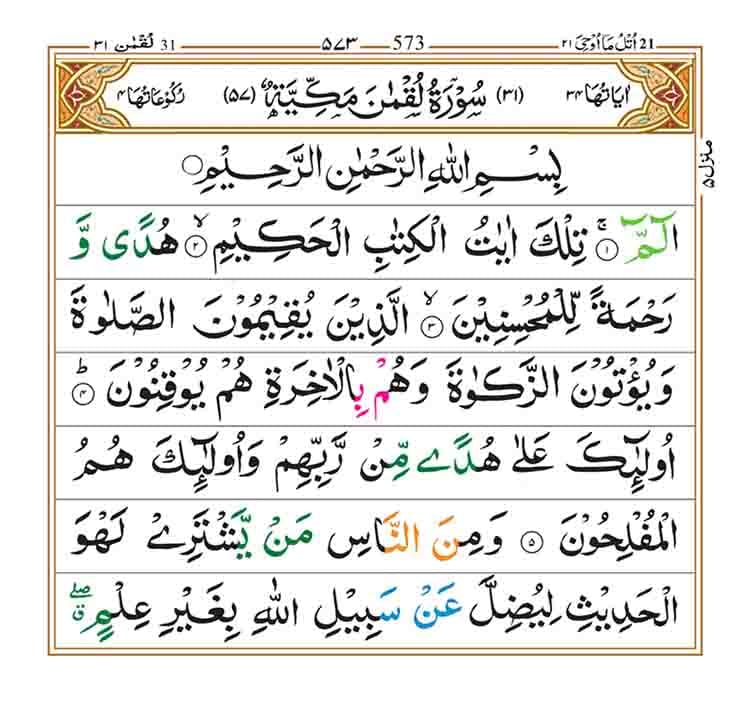 اُتْلُ مَا اُوْحِیَ ٢١ 21 573 ٥٧٣ لُقْمٰن ٣١ 31
اٰیَاتُهَا ٣٤ (٣١) سُوْرَةُ لُقْمٰنَ مَكِّیَّةٌ (٥٧) رُكُوْعَاتُهَا ٤
منزل ٥
بِسْمِ اللّٰهِ الرَّحْمٰنِ الرَّحِیْمِ
الٓمّٓ ۚ ١ تِلْكَ اٰیٰتُ الْكِتٰبِ الْحَكِیْمِ ۙ ٢ هُدًی وَّ
رَحْمَةً لِّلْمُحْسِنِیْنَ ۙ ٣ الَّذِیْنَ یُقِیْمُوْنَ الصَّلٰوةَ
وَیُؤْتُوْنَ الزَّكٰوةَ وَهُمْ بِالْاٰخِرَةِ هُمْ یُوْقِنُوْنَ ؕ ٤
اُولٰٓئِكَ عَلٰی هُدًی مِّنْ رَّبِّهِمْ وَاُولٰٓئِكَ هُمُ
الْمُفْلِحُوْنَ ٥ وَمِنَ النَّاسِ مَنْ یَّشْتَرِیْ لَهْوَ
الْحَدِیْثِ لِیُضِلَّ عَنْ سَبِیْلِ اللّٰهِ بِغَیْرِ عِلْمٍ ۖق